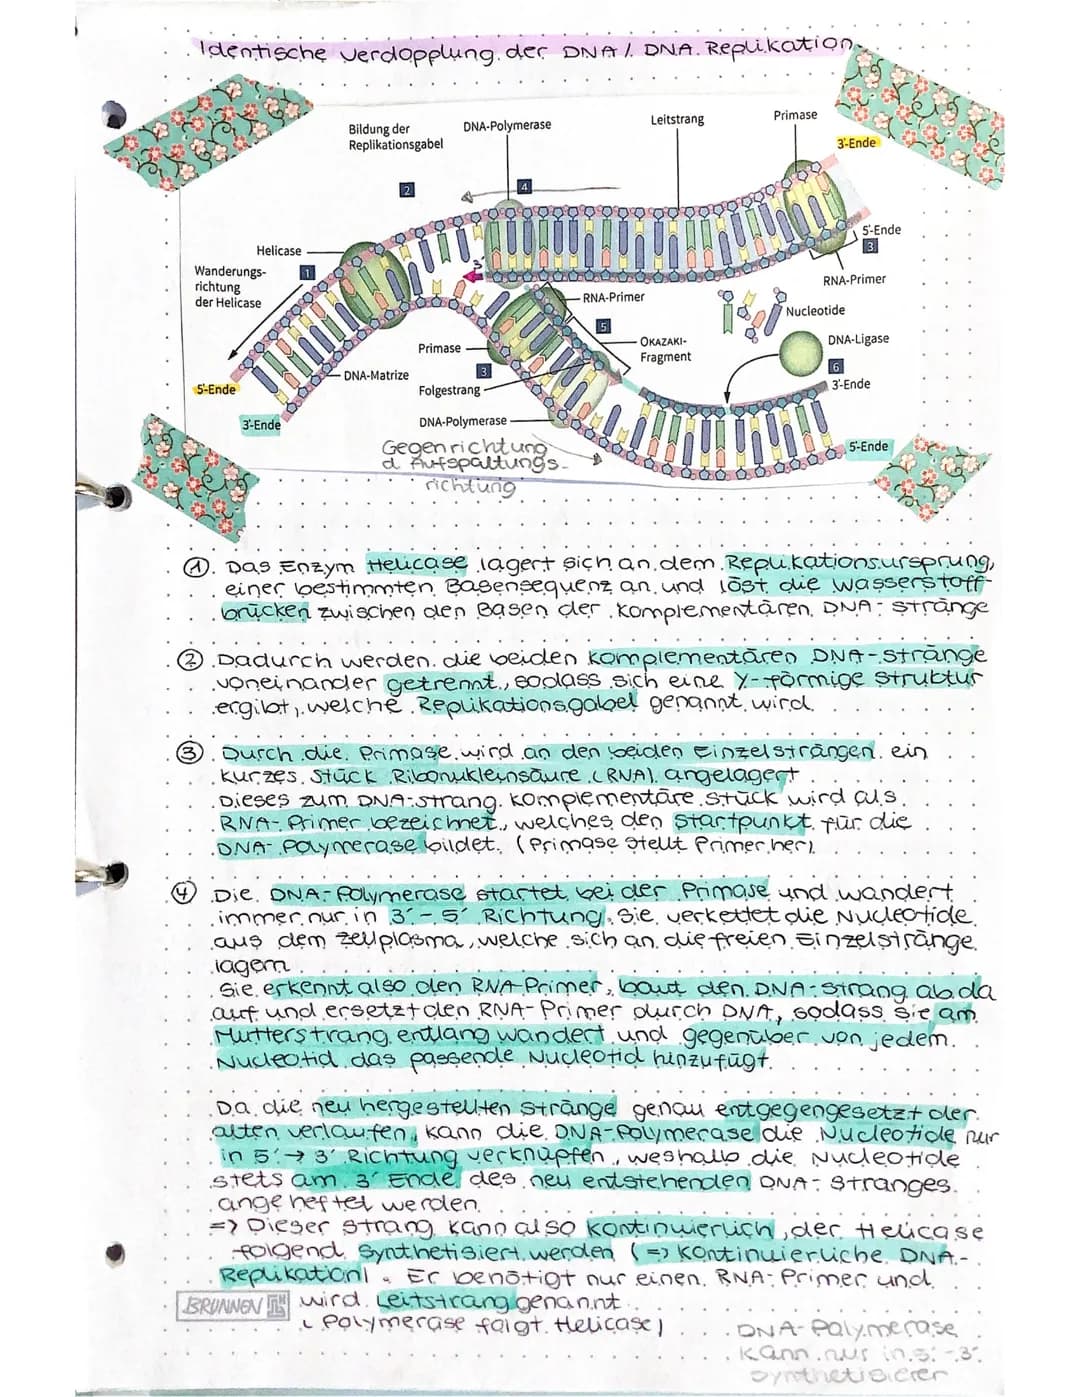 Identische Verdopplung der DNA / DNA Replikation
Bildung der
Replikationsgabel
DNA-Polymerase
Leitstrang
Primase
3'-Ende
2
4
Helicase
5'-Ende
3
Wanderungs-
richtung
der Helicase
1
3'
RNA-Primer
RNA-Primer
Nucleotide
5
OKAZAKI-
Fragment
DNA-Ligase
Primase
3
6
DNA-Matrize
3'-Ende
5'-Ende
Folgestrang
3'-Ende
DNA-Polymerase
5'-Ende
Gegenrichtung
d. Aufspaltungs-
richtung
① Das Enzym Helicase lagert sich an dem Replikationsursprung,
einer bestimmten Basensequenz an und löst die Wasserstoff-
brücken zwischen den Basen der komplementären DNA-Stränge
② Dadurch werden die beiden komplementären DNA-Stränge
voneinander getrennt, sodass sich eine Y-förmige Struktur
ergibt, welche Replikationsgabel genannt wird.
③ Durch die Primase wird an den beiden Einzelsträngen ein
kurzes Stück Ribonukleinsäure (RNA) angelagert
Dieses zum DNA-Strang komplementäre Stück wird als
RNA-Primer bezeichnet, welches den Startpunkt für die
DNA-Polymerase bildet. (Primase stellt Primer her)
④ Die DNA-Polymerase startet bei der Primase und wandert
immer nur in 3'-5' Richtung. Sie verkettet die Nucleotide
aus dem Zellplasma, welche sich an die freien Einzelstränge
lagern.
Sie erkennt also den RNA-Primer, baut den DNA-Strang ab da
auf und ersetzt den RNA-Primer durch DNA, sodass sie am
Mutterstrang entlang wandert und gegenüber von jedem
Nucleotid das passende Nucleotid hinzufügt.
Da die neu hergestellten Stränge genau entgegengesetzt der
alten verlaufen, kann die DNA-Polymerase die Nucleotide nur
in 5' → 3' Richtung verknüpfen, weshalb die Nucleotide
stets am 3' Ende des neu entstehenden DNA-Stranges
angeheftet werden.
=> Dieser Strang kann also kontinuierlich, der Helicase
folgend synthetisiert werden (=> kontinuierliche DNA-
Replikation). Er benötigt nur einen RNA-Primer und
BRUNNEN wird Leitstrang genannt.
(Polymerase folgt Helicase)
DNA-Polymerase
kann nur in 5'-3'
synthetisieren